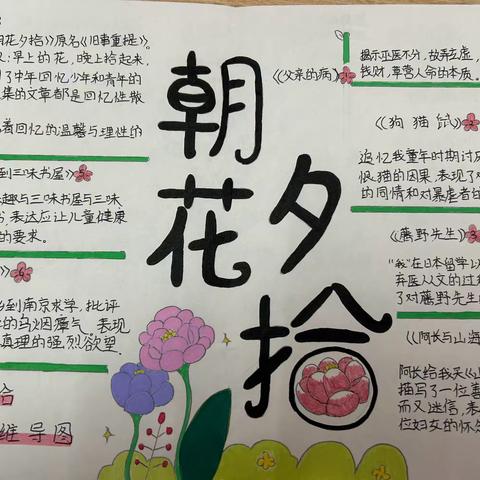 朝花夕拾
朝花夕拾》原名《旧事重提》。
早上的花,晚上拾起来,
了中年回忆少年和青年的
集的文章都是回忆性散
着回忆的温馨与理性的
到三味书屋》5
趣与三味书屋与三味
表达应让儿童健康
的要求。
》6
到南京求学,批评
的乌烟瘴气,表现
真理的强烈欲望。
拾
维导图
《父亲的病》1
揭示巫医不分,故弄玄虚,
钱财,草菅人命的本质。
《狗猫鼠》2
追忆我童年时期讨厌
恨猫的因果,表现了对
的同情和对暴虐者的
《藤野先生》3
"我"在日本留学
弃医从文的过
了对藤野先生
《阿长与山海
阿长给我买《山
描写了一位善
而又迷信,表
位妇女的怀念